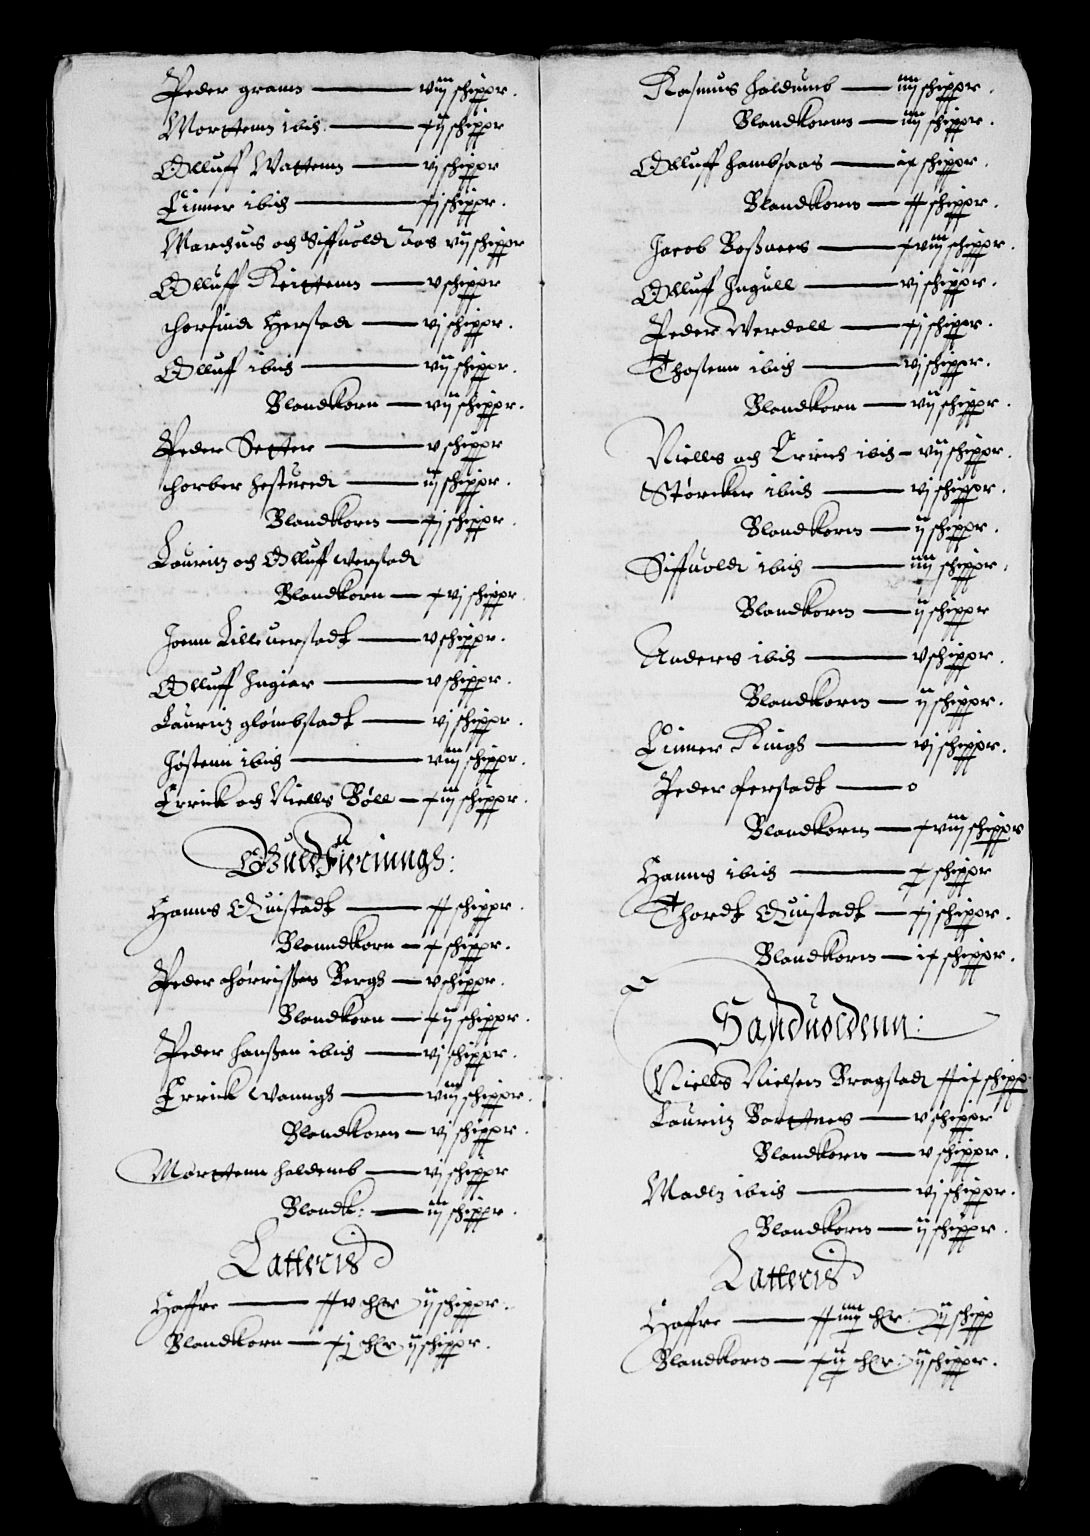 Peder gramm — viij schippr.
Morttenn ibid. — xij schippr
Olluff Wattenn — vj schippr
Einner ibid — xj schippr.
Marchus och Siffuold Aas vij schippr
Olluff Reittenn — v schippr
thorfind Herstad — vj schippr.
Olluff ibid — vij schippr.
Blandkorn — vij schippr.
Peder Setter — v schippr
thorber hestued — iij schippr.
Blandkorn — xj schippr.
Lauritz och Olluff werstad
Blandkorn — xvj schippr.
Joenn Lilleuerstadt — v schippr.
Olluff Ingier — v schippr.
Lauritz glømbstadt — vj schippr.
Jøstenn ibid — viij schippr.
Errick och Niells Bøll — xiij schippr.
Guldfierinngh:
Hanns Quistadt — xx schippr.
Blanndkorn — x schippr.
Peder thorrissøn Bergh — v schippr.
Blandkorn — xij schippr.
Peder hanßen ibid — vj schippr.
Errick Wanngh — viij schippr.
Blandkorn — vj schippr.
Morttenn haldemb — vj schippr
Blandk: — iij schippr.
Latteris
Haffre — xxv thr ij schippr.
Blandkorn — xj thr ij schippr.
Rasmus haldumb — iiij schippr.
Blandkorn — iiij schippr.
Olluff hambsaas — ix schippr.
Blandkorn — xx schippr.
Jacob Boßnes — xviij schippr.
Olluff Ingull — vj schippr.
Peder Werdall — xj schippr.
Thostenn ibid — vj schippr.
Blandkorn — vij schippr.
Niells och Errick ibid – vij schippr.
Størcker ibid — vj schippr.
Blandkorn — ij schippr.
Siffuold ibid — iiij schippr.
Blandkorn — ij schippr
Anders ibid — v schippr.
Blandkorn — ij schippr.
Einner Ringh — vj schippr.
Peder ferstadt — o
Blandkorn — xviij schippr
Hanns ibid — x schippr
Thordt Quistadt — xj schippr.
Blandkorn — ix schippr.
Sanduoldenn:
Niells Nielsen Bragstad xxix schipp.
Lauritz Bortnes — v schippr
Blandkorn — v schippr.
Madtz ibid — vj schippr.
Blandkorn — ij schippr.
Latteris
Haffre — xxiiij thr. ij schipp
Blandkorn — xij thr. ij schippr.